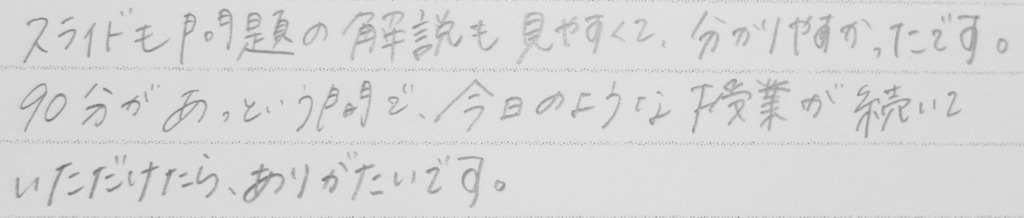 スライドも問題の解説も見やすくて、分かりやすかったです。
90分があっという間で、今日のような授業が続いて
いただけたら、ありがたいです。